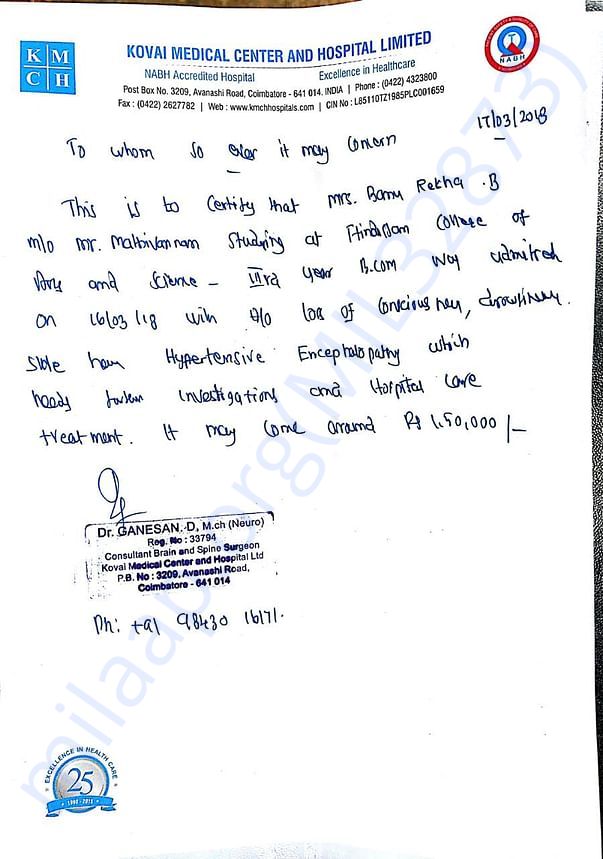 K M
C H
KOVAI MEDICAL CENTER AND HOSPITAL LIMITED
NABH Accredited Hospital Excellence in Healthcare
Post Box No. 3209, Avanashi Road, Coimbatore - 641 014. INDIA | Phone : (0422) 4323800
Fax : (0422) 2627782 | Web : www.kmchhospitals.com | CIN No : L85110TZ1985PLC001659
NABH
17/03/2018
To whom so ever it may concern
This is to Certify that Mrs. Banu Rekha .B
m/o Mr. Mathivannam Studying at Hindustan College of
Arts and Science - IIIrd year B.COM was admitted
on 16/03/18 with H/o loss of consciousness, drowsiness.
She have Hypertensive Encephalopathy which
needs further investigations and Hospital care
treatment. It may come around Rs 1,50,000 /-
Dr. GANESAN. D, M.ch (Neuro)
Reg. No : 33794
Consultant Brain and Spine Surgeon
Kovai Medical Center and Hospital Ltd
P.B. No : 3209, Avanashi Road,
Coimbatore - 641 014
Ph: +91 98430 16171.
EXCELLENCE IN HEALTH CARE
25
milaap.org(MIL32873)